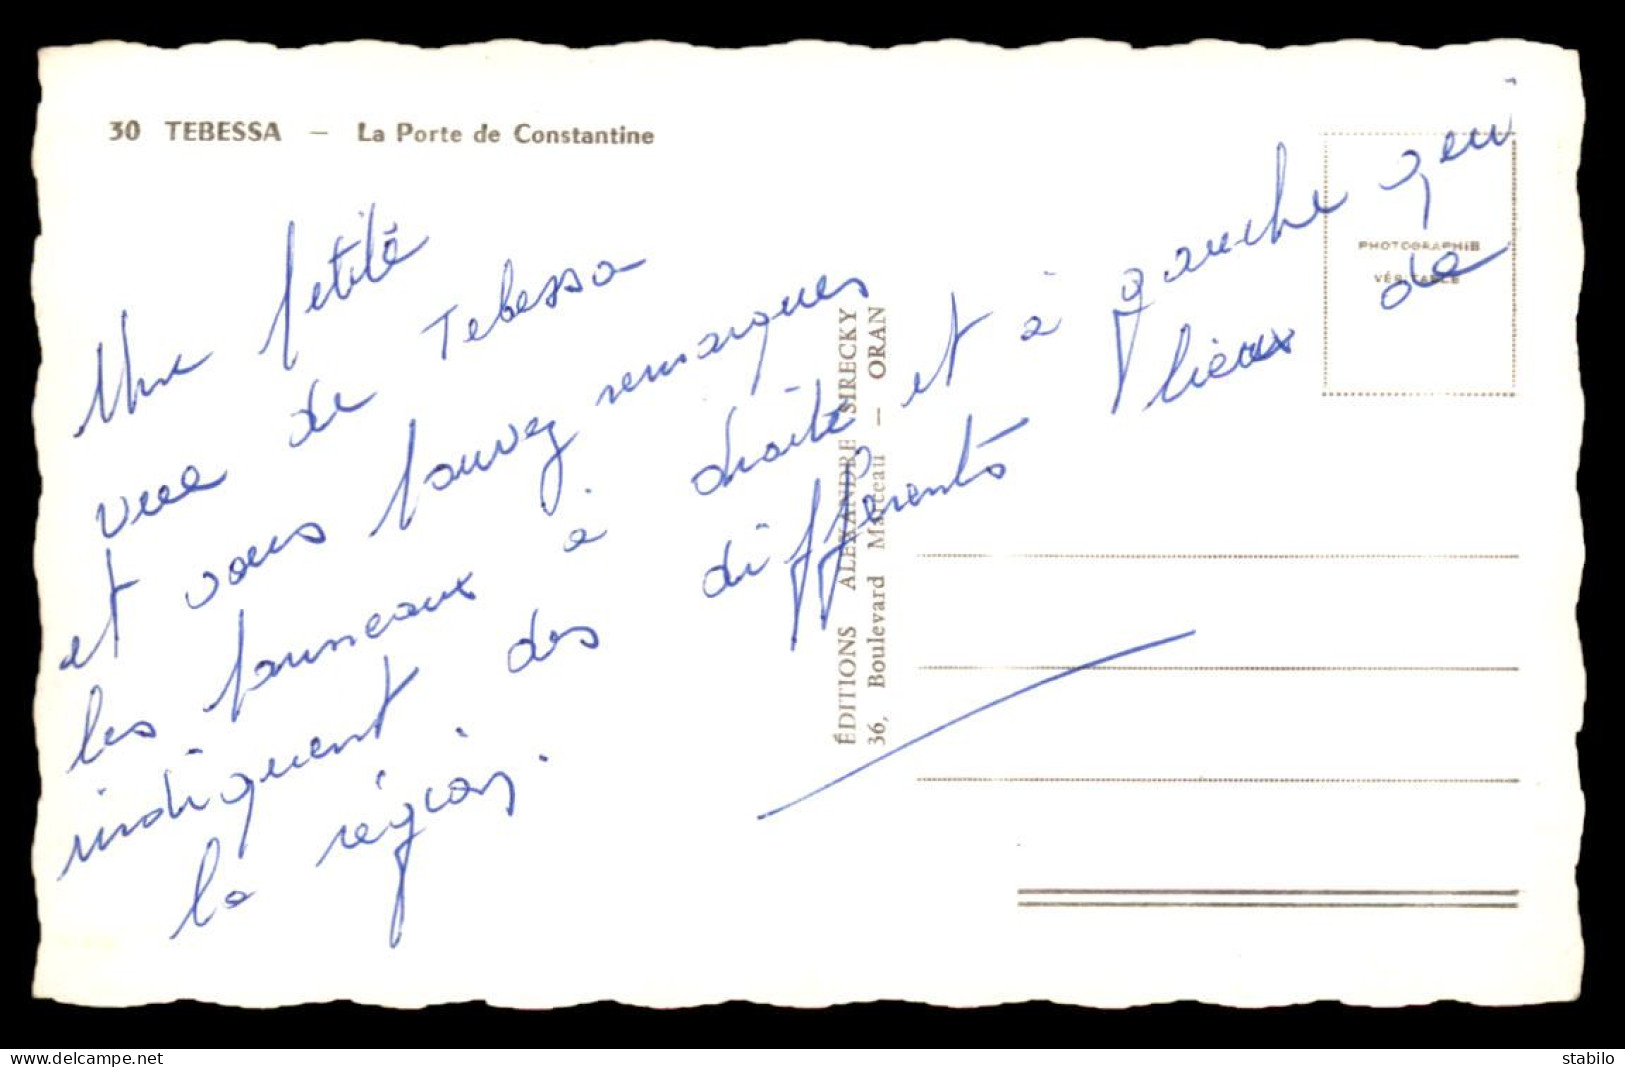 30 TEBESSA — La Porte de Constantine
Une petite
vue de Tebessa
et vous pouvez remarques
les panneaux à droite et à gauche qui
indiquent des différents lieux de
la région.
ÉDITIONS ALEXANDRE SIRECKY
36, Boulevard Marceau — ORAN
PHOTOGRAPHIE
VÉRITABLE
www.delcampe.net
stabilo